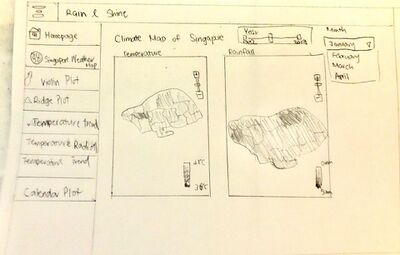 Rain & Shine
Homepage
Singapore Weather
Map
Violin Plot
Ridge Plot
Temperature trend
Temperature Radial
Temperature Trend
Calendar Plot
Climate Map of Singapore
Year
Month
January
February
March
April
Temperature
Rainfall